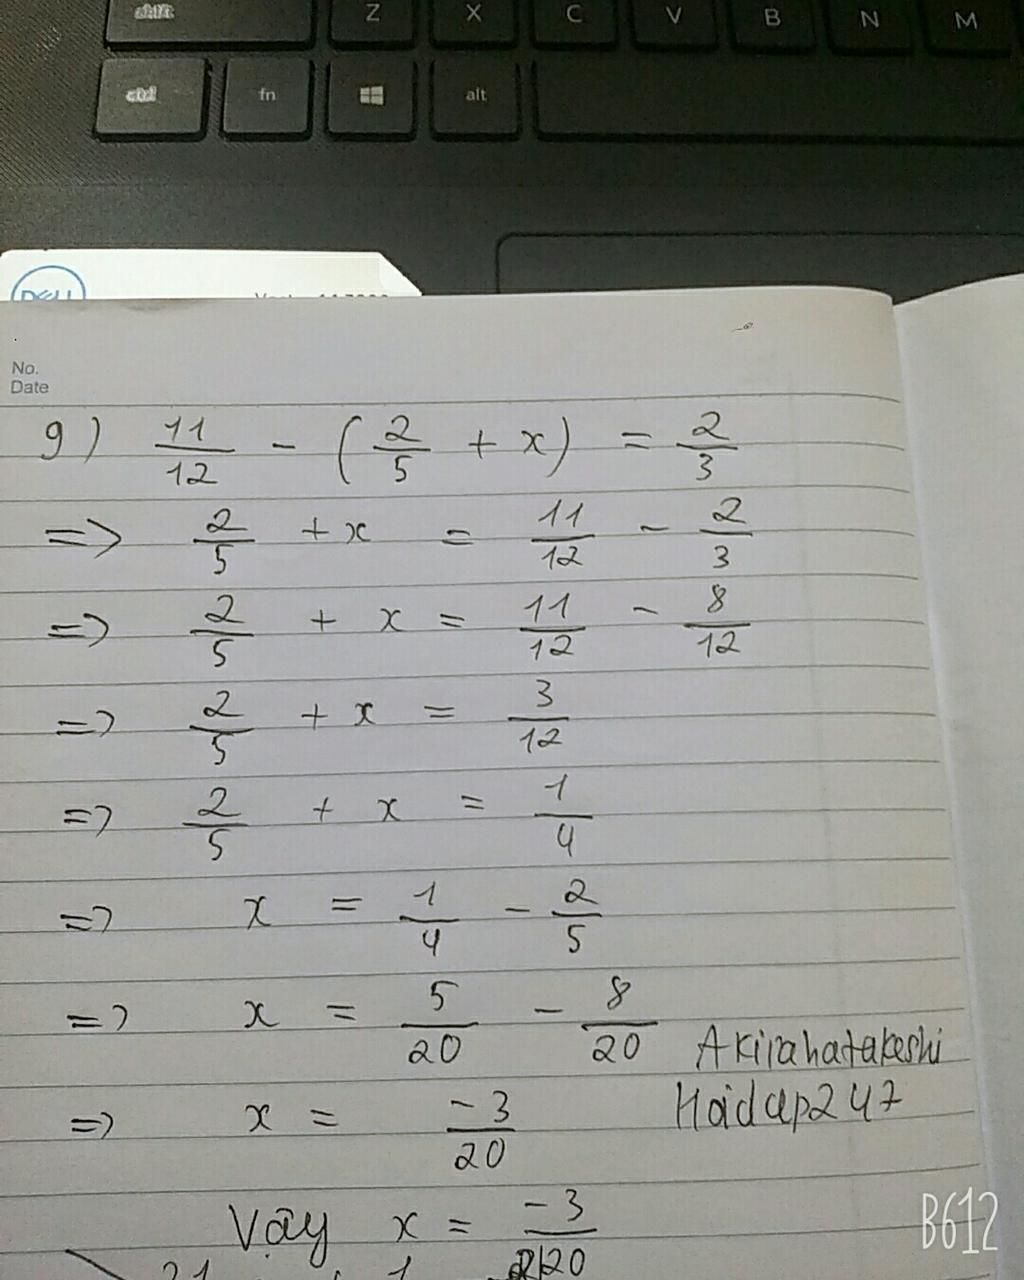 shift Z X C V B N M
ctrl fn alt
DELL
No.
Date
g) 11/12 - (2/5 + x) = 2/3
=> 2/5 + x = 11/12 - 2/3
=> 2/5 + x = 11/12 - 8/12
=> 2/5 + x = 3/12
=> 2/5 + x = 1/4
=> x = 1/4 - 2/5
=> x = 5/20 - 8/20
Akirahatakeshi
=> x = -3/20
Hoidap247
Vậy x = -3/20
B612